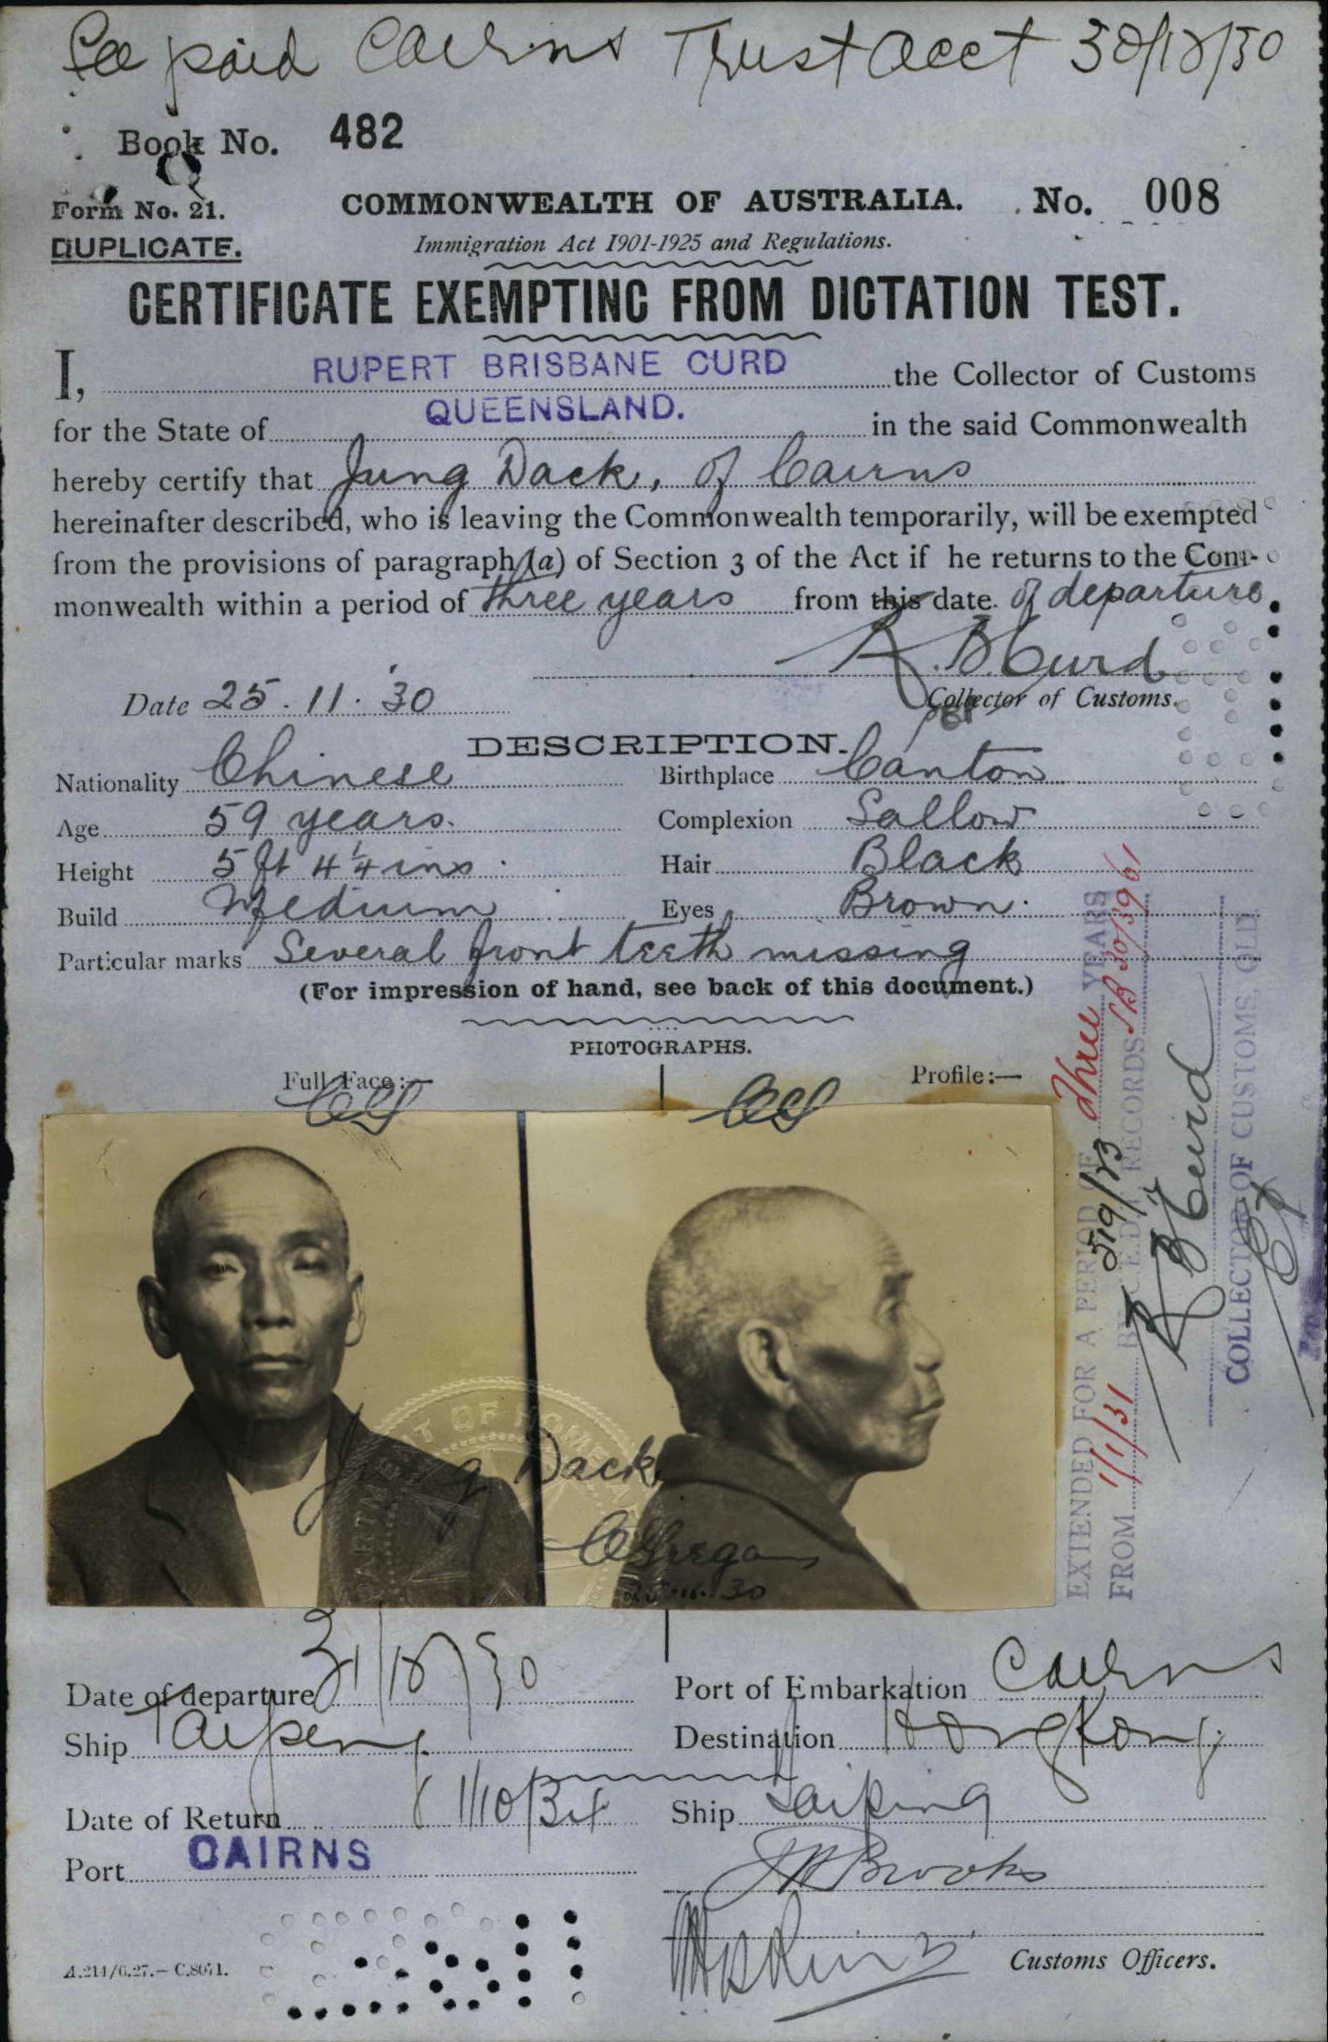 Fee paid Cairns Trust Acct 30/12/30
Book No. 482
Form No. 21. COMMONWEALTH OF AUSTRALIA. No. 008
DUPLICATE. Immigration Act 1901-1925 and Regulations.
CERTIFICATE EXEMPTING FROM DICTATION TEST.
I, RUPERT BRISBANE CURD the Collector of Customs
for the State of QUEENSLAND. in the said Commonwealth
hereby certify that Jung Dack, of Cairns
hereinafter described, who is leaving the Commonwealth temporarily, will be exempted
from the provisions of paragraph (a) of Section 3 of the Act if he returns to the Com-
monwealth within a period of three years from this date of departure.
R. B. Curd
Date 25.11.30 Collector of Customs.
DESCRIPTION.
Nationality Chinese Birthplace Canton
Age 59 years. Complexion Sallow
Height 5 ft 4 1/4 ins Hair Black
Build Medium Eyes Brown.
Particular marks Several front teeth missing
(For impression of hand, see back of this document.)
PHOTOGRAPHS.
Full Face:— Profile:—
Jung Dack
EXTENDED FOR A PERIOD OF three YEARS
FROM 1/1/31 RECORDS
R B Curd
COLLECTOR OF CUSTOMS, QLD.
Date of departure 31/12/30 Port of Embarkation Cairns
Ship Taiping Destination Hong Kong
Date of Return 1/10/34 Ship Taiping
Port CAIRNS
Brooks
A.214/6.27.—C.8071. Customs Officers.